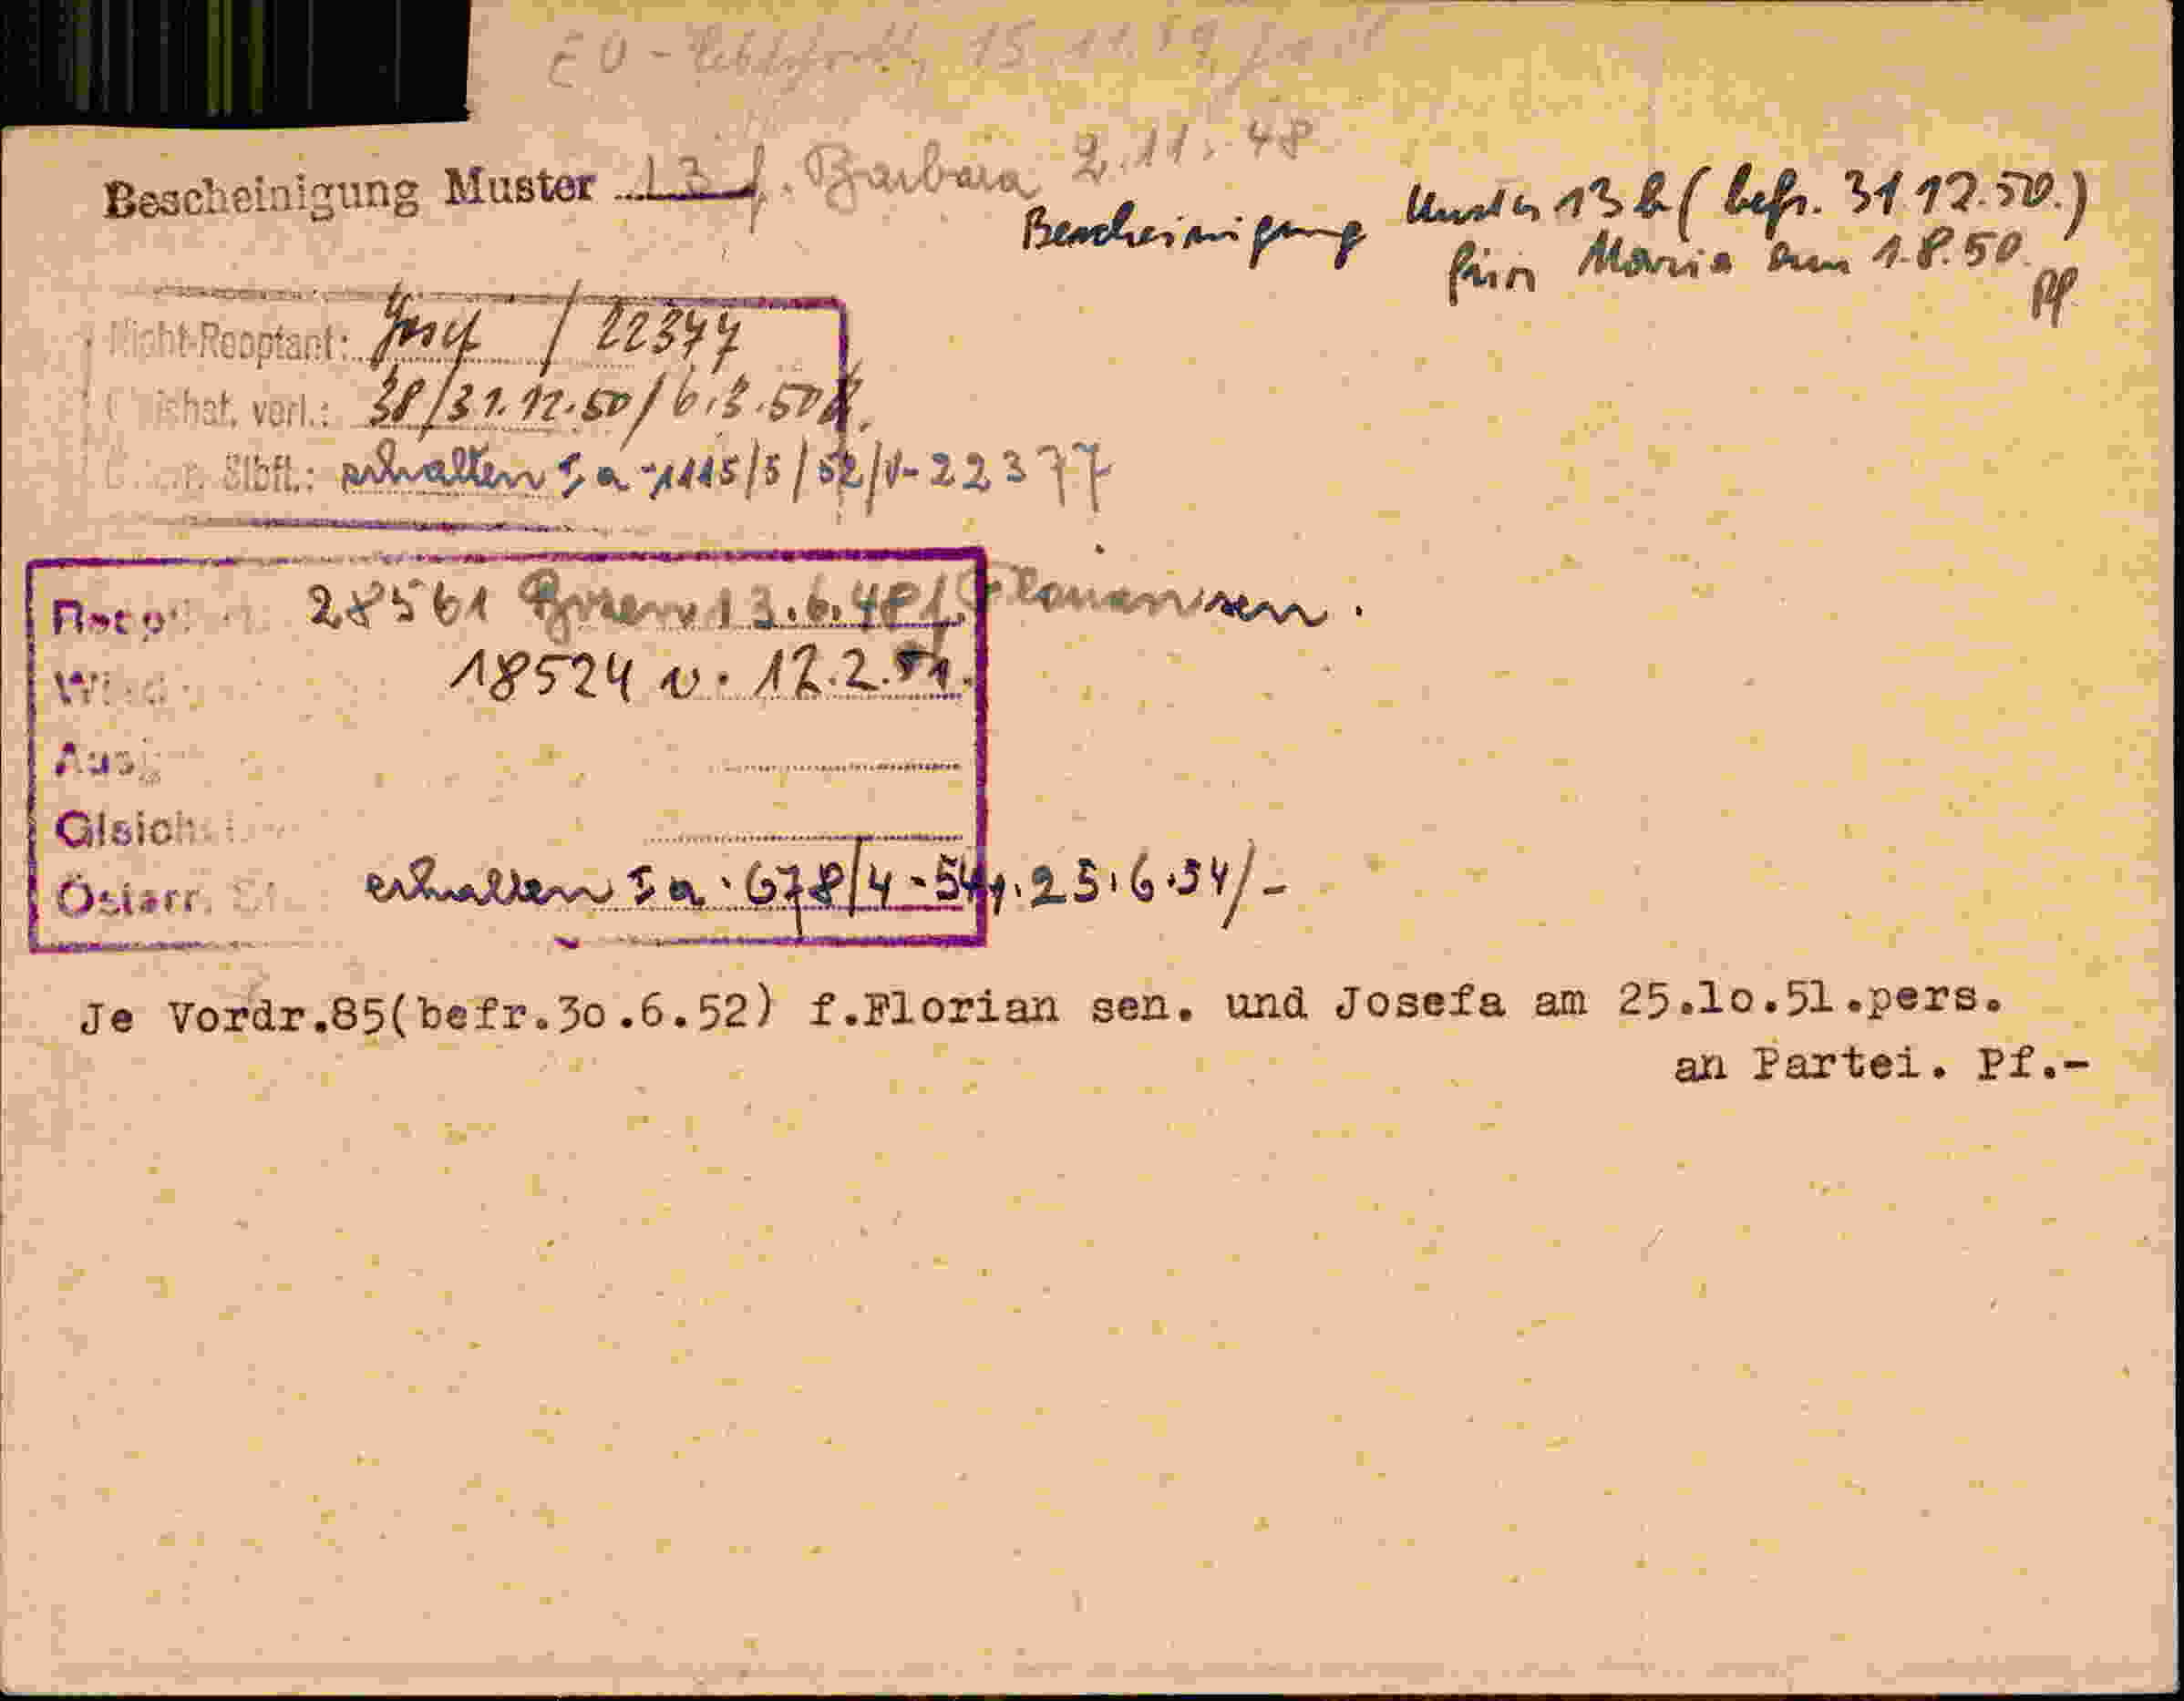 EU - 15.11.49
Bescheinigung Muster 13 f. Barbara 2.11.48
Bescheinigung Muster 13 b (befr. 31 12.50.)
für Maria am 1.8.50.
Pf.
Nicht-Reoptant: Josef / 22377
verl.: 38/31.12.50/6.3.50
Stbft.: erhalten Ia-1115/5/52/V-22377
28561 Brenn. 13.6.48 f. Florian sen.
18524 v. 12.2.51.
Gleich
Österr. St erhalten Ia.678/4-54, 23.6.54/-
Je Vordr.85(befr.3o.6.52) f.Florian sen. und Josefa am 25.1o.51.pers.
an Partei. Pf.-